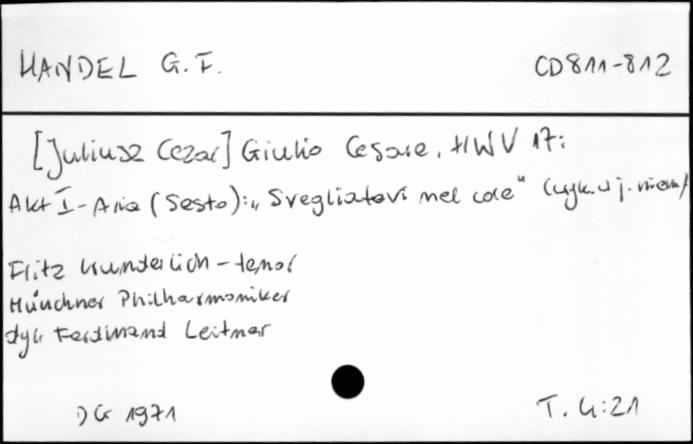 HANDEL G. F.
CD811-812
[Juliusz Cezar] Giulio Cesare, HWV 17:
Akt I - Aria (Sesto): „Svegliatevi nel core" (wyk. w j. niem)
Fritz Wunderlich - tenor
Münchner Philharmoniker
dyr. Ferdinand Leitner
DG 1971
T. 4:21